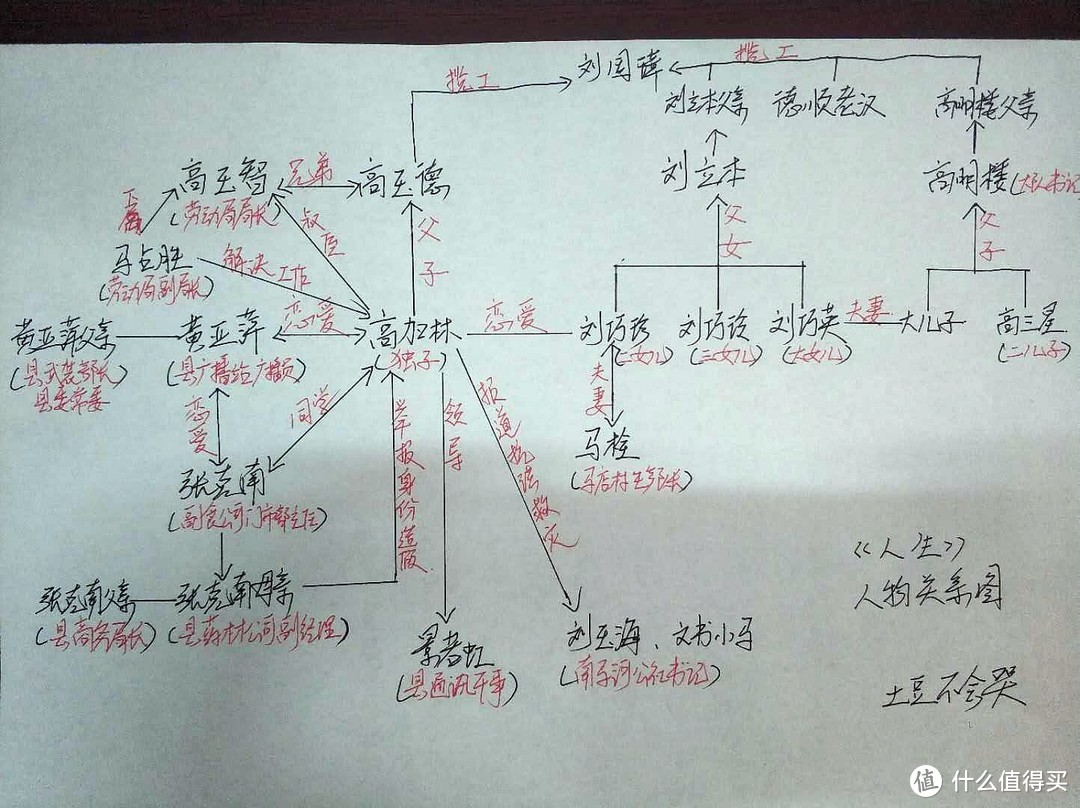 刘国璋
揽工
揽工
刘立本父亲
德顺老汉
高明楼父亲
高玉智
(劳动局局长)
兄弟
高玉德
刘立本
高明楼
(大队书记)
叔侄
父子
父女
父子
马占胜
(劳动局副局长)
解决工作
黄亚萍父亲
(县武装部长
县委常委)
黄亚萍
(县广播站广播员)
恋爱
高加林
(独子)
恋爱
刘巧珍
(二女儿)
刘巧玲
(三女儿)
刘巧英
(大女儿)
夫妻
大儿子
高三星
(二儿子)
恋爱
同学
举报身份造假
领导
报道抗洪救灾
夫妻
马栓
(马店村生产队长)
张克南
(副食公司门市部主任)
张克南父亲
(县商务局长)
张克南母亲
(县药材公司副经理)
景若虹
(县通讯干事)
刘玉海、文书小马
(南马河公社书记)
《人生》
人物关系图
土豆不会哭
值 什么值得买